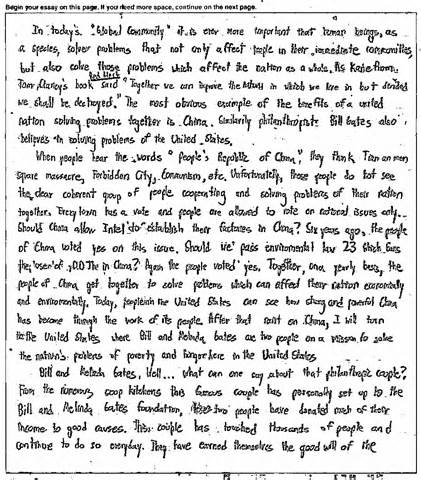 Begin your essay on this page. If you need more space, continue on the next page.
In today's "Global Community" it is ever more important that human beings, as
a species, solve problems that not only affect people in their immediate communities,
but also solve those problems which affect the nation as a whole. As Kate from
Tom Clancy's book Red said "Together we can improve the nation in which we live in but divided
we shall be destroyed." The most obvious example of the benefits of a united
nation solving problems together is China. Similarily philanthropists Bill Gates also
believes in solving problems of the United States.
When people hear the words "People's Republic of China," they think Tiananmen
square massacre, Forbidden City, Communism, etc. Unfortunately, those people do not see
the clear coherent group of people cooperating and solving problems of their nation
together. Every town has a vote and people are allowed to vote on national issues only.
Should China allow Intel to establish their factories in China? Six years ago, the people
of China voted yes on this issue. Should we pass environmental law 23 which bans
the use of in China? Again the people voted yes. Together, on a yearly basis, the
people of China get together to solve problems which can affect their nation economically
and environmentally. Today, people in the United States can see how strong and powerful China
has become through the work of its people. After that rant on China, I will turn
to the United States where Bill and Melinda Gates are two people on a mission to solve
the nation's problems of poverty and hunger here in the United States.
Bill and Melinda Gates, Well... what can one say about that philanthropic couple?
From the numerous soup kitchens this famous couple has personally set up to the
Bill and Melinda Gates foundation, these two people have donated much of their
income to good causes. This couple has touched thousands of people and
continue to do so everyday. They have earned themselves the good will of the